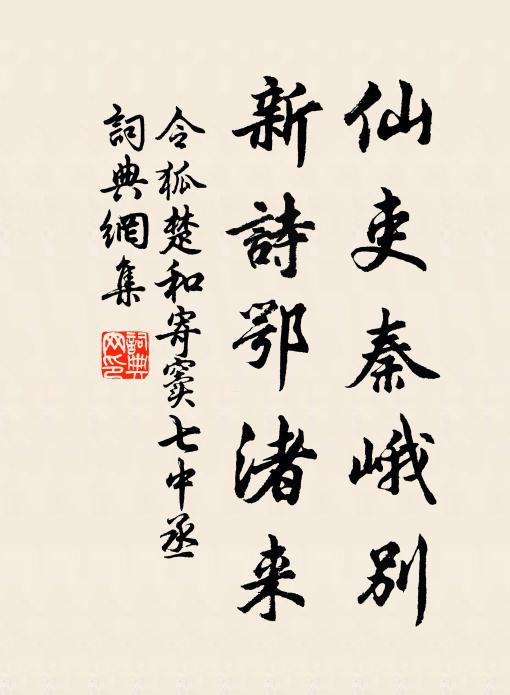 仙吏秦峨别
新詩鄂渚来
令狐楚和寄窦七中丞
詞典網集
詞典网印